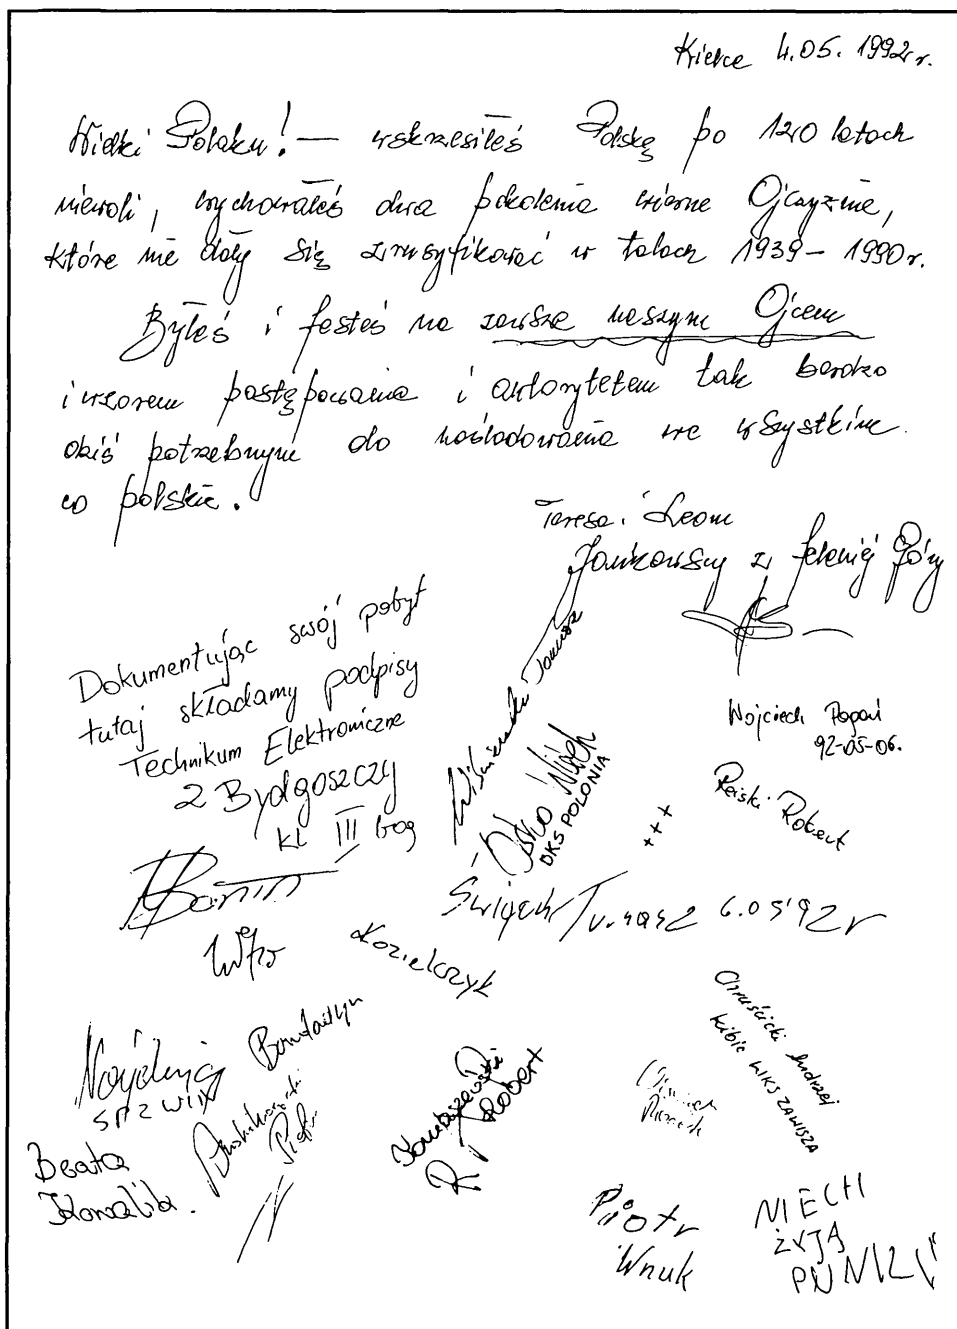 Kielce 4.05.1992r.
Wielki Polaku! — wskrzesiłeś Polskę po 120 latach
niewoli, wychowałeś dwa pokolenia wierne Ojczyźnie,
które nie dały się zrusyfikować w latach 1939 – 1990r.
Byłeś i jesteś na zawsze naszym Ojcem
i wzorem postępowania i autorytetem tak bardzo
dziś potrzebnym do naśladowania we wszystkim
co polskie.
Teresa i Leon
Jankowscy z Jeleniej Góry
Dokumentując swój pobyt
tutaj składamy podpisy
Technikum Elektroniczne
z Bydgoszczy
kl III
Janusz
DKS POLONIA
Wojciech
92-05-06.
Reiski Robert
+++
Święch 6.05'92r
Kozielczyk
Chruścicki Andrzej
kibic WKS ZAWISZA
Robert
Piotr
Beata
Kowalik.
Piotr
Wnuk
NIECH
ŻYJĄ